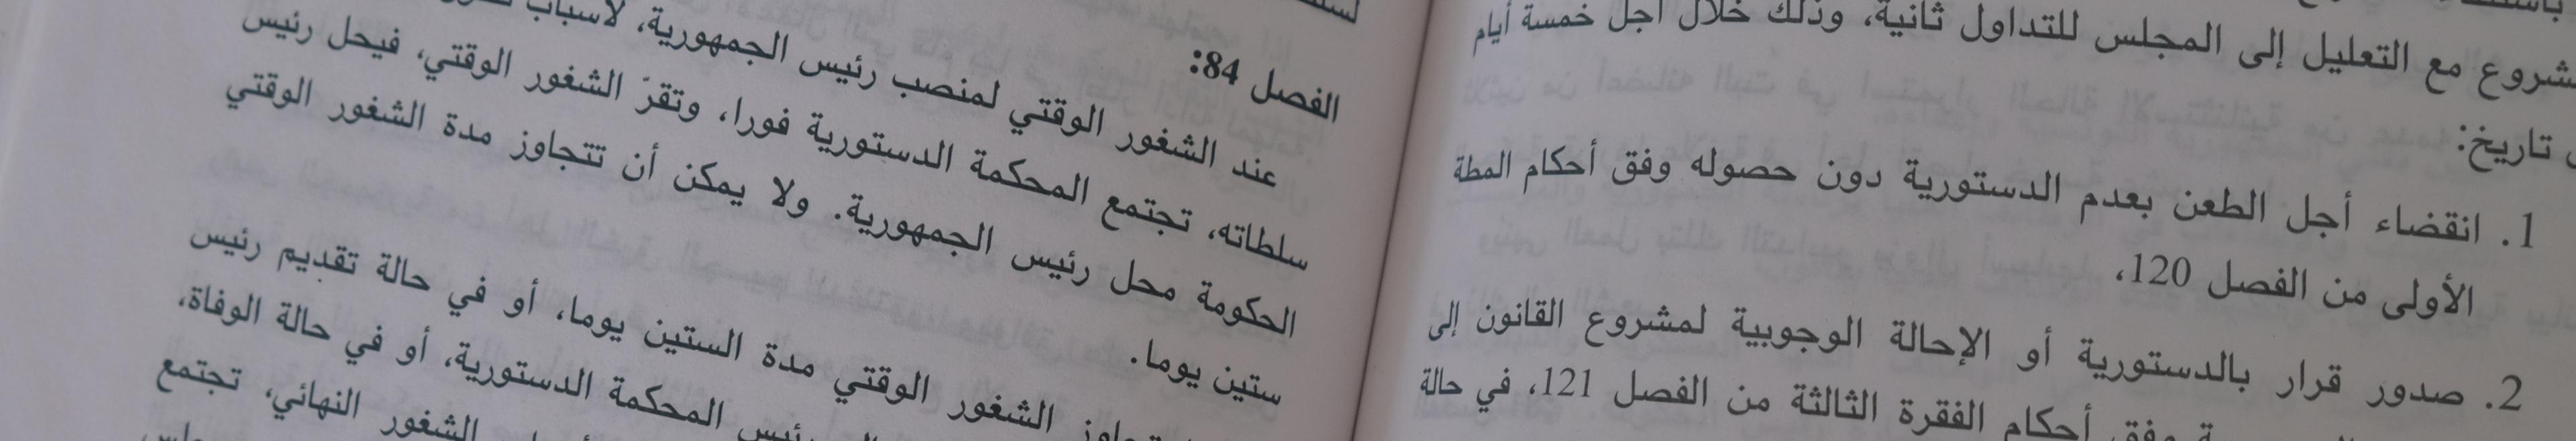 مشروع مع التعليل إلى المجلس للتداول ثانية، وذلك خلال أجل خمسة أيام
تاريخ:
1. انقضاء أجل الطعن بعدم الدستورية دون حصوله وفق أحكام المطة
الأولى من الفصل 120،
2. صدور قرار بالدستورية أو الإحالة الوجوبية لمشروع القانون إلى
وفق أحكام الفقرة الثالثة من الفصل 121، في حالة
الفصل 84:
عند الشغور الوقتي لمنصب رئيس الجمهورية، لأسباب
سلطاته، تجتمع المحكمة الدستورية فورا، وتقرّ الشغور الوقتي، فيحل رئيس
الحكومة محل رئيس الجمهورية. ولا يمكن أن تتجاوز مدة الشغور الوقتي
ستين يوما.
الشغور الوقتي مدة الستين يوما، أو في حالة تقديم رئيس
رئيس المحكمة الدستورية، أو في حالة الوفاة،
الشغور النهائي، تجتمع